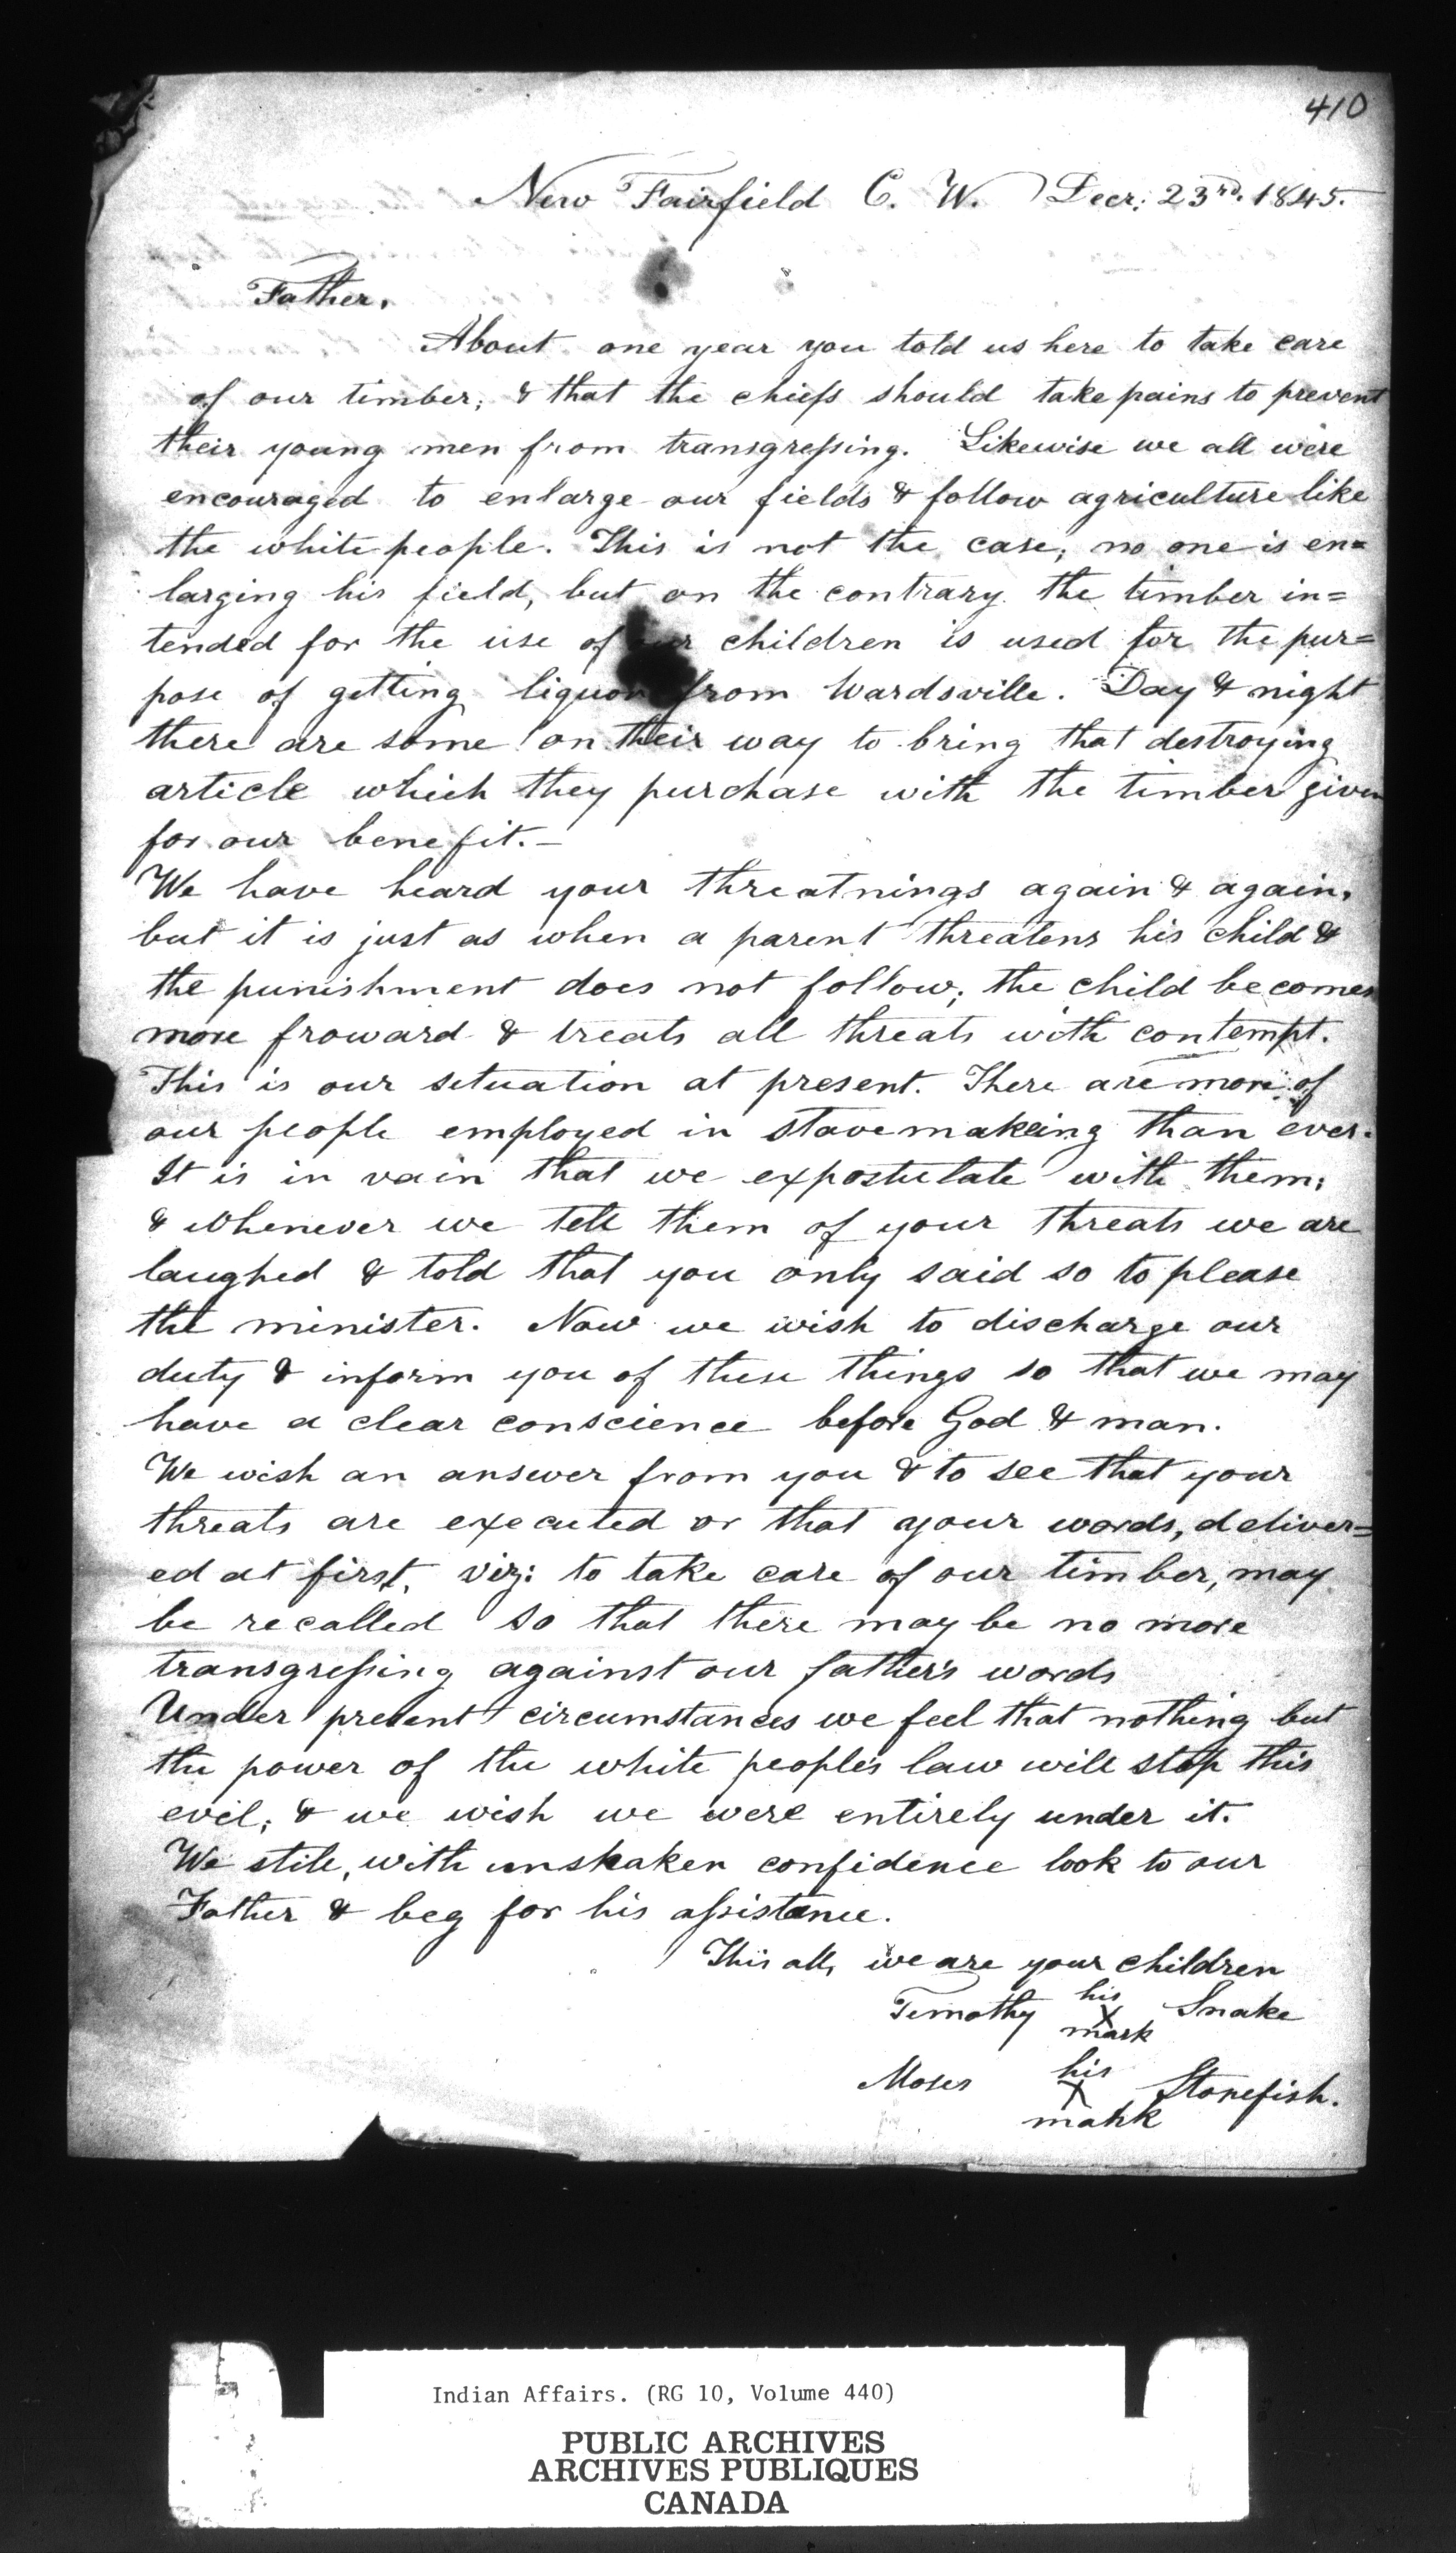 410
New Fairfield C. W. Decr: 23rd. 1845.
Father,
About one year you told us here to take care
of our timber; & that the chiefs should take pains to prevent
their young men from transgressing. Likewise we all were
encouraged to enlarge our fields & follow agriculture like
the white people. This is not the case; no one is en=
larging his field, but on the contrary the timber in=
tended for the use of our children is used for the pur=
pose of getting liquor from Wardsville. Day & night
there are some on their way to bring that destroying
article which they purchase with the timber given
for our benefit.—
We have heard your threatnings again & again,
but it is just as when a parent threatens his child &
the punishment does not follow; the child becomes
more froward & treats all threats with contempt.
This is our situation at present. There are more of
our people employed in stavemakeing than ever.
It is in vain that we expostulate with them;
& whenever we tell them of your threats we are
laughed & told that you only said so to please
the minister. Now we wish to discharge our
duty & inform you of these things so that we may
have a clear conscience before God & man.
We wish an answer from you & to see that your
threats are executed or that your words, deliver=
ed at first, viz: to take care of our timber, may
be recalled so that there may be no more
transgressing against our father's words
Under present circumstances we feel that nothing but
the power of the white people's law will stop this
evil; & we wish we were entirely under it.
We still, with unshaken confidence look to our
Father & beg for his assistance.
This all, we are your children
his
Timothy X Snake
mark
his
Moses X Stonefish.
mark
Indian Affairs. (RG 10, Volume 440)
PUBLIC ARCHIVES
ARCHIVES PUBLIQUES
CANADA